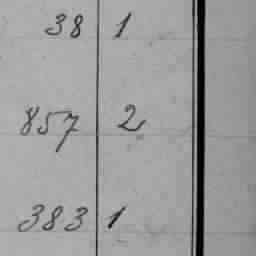 38 1
857 2
383 1